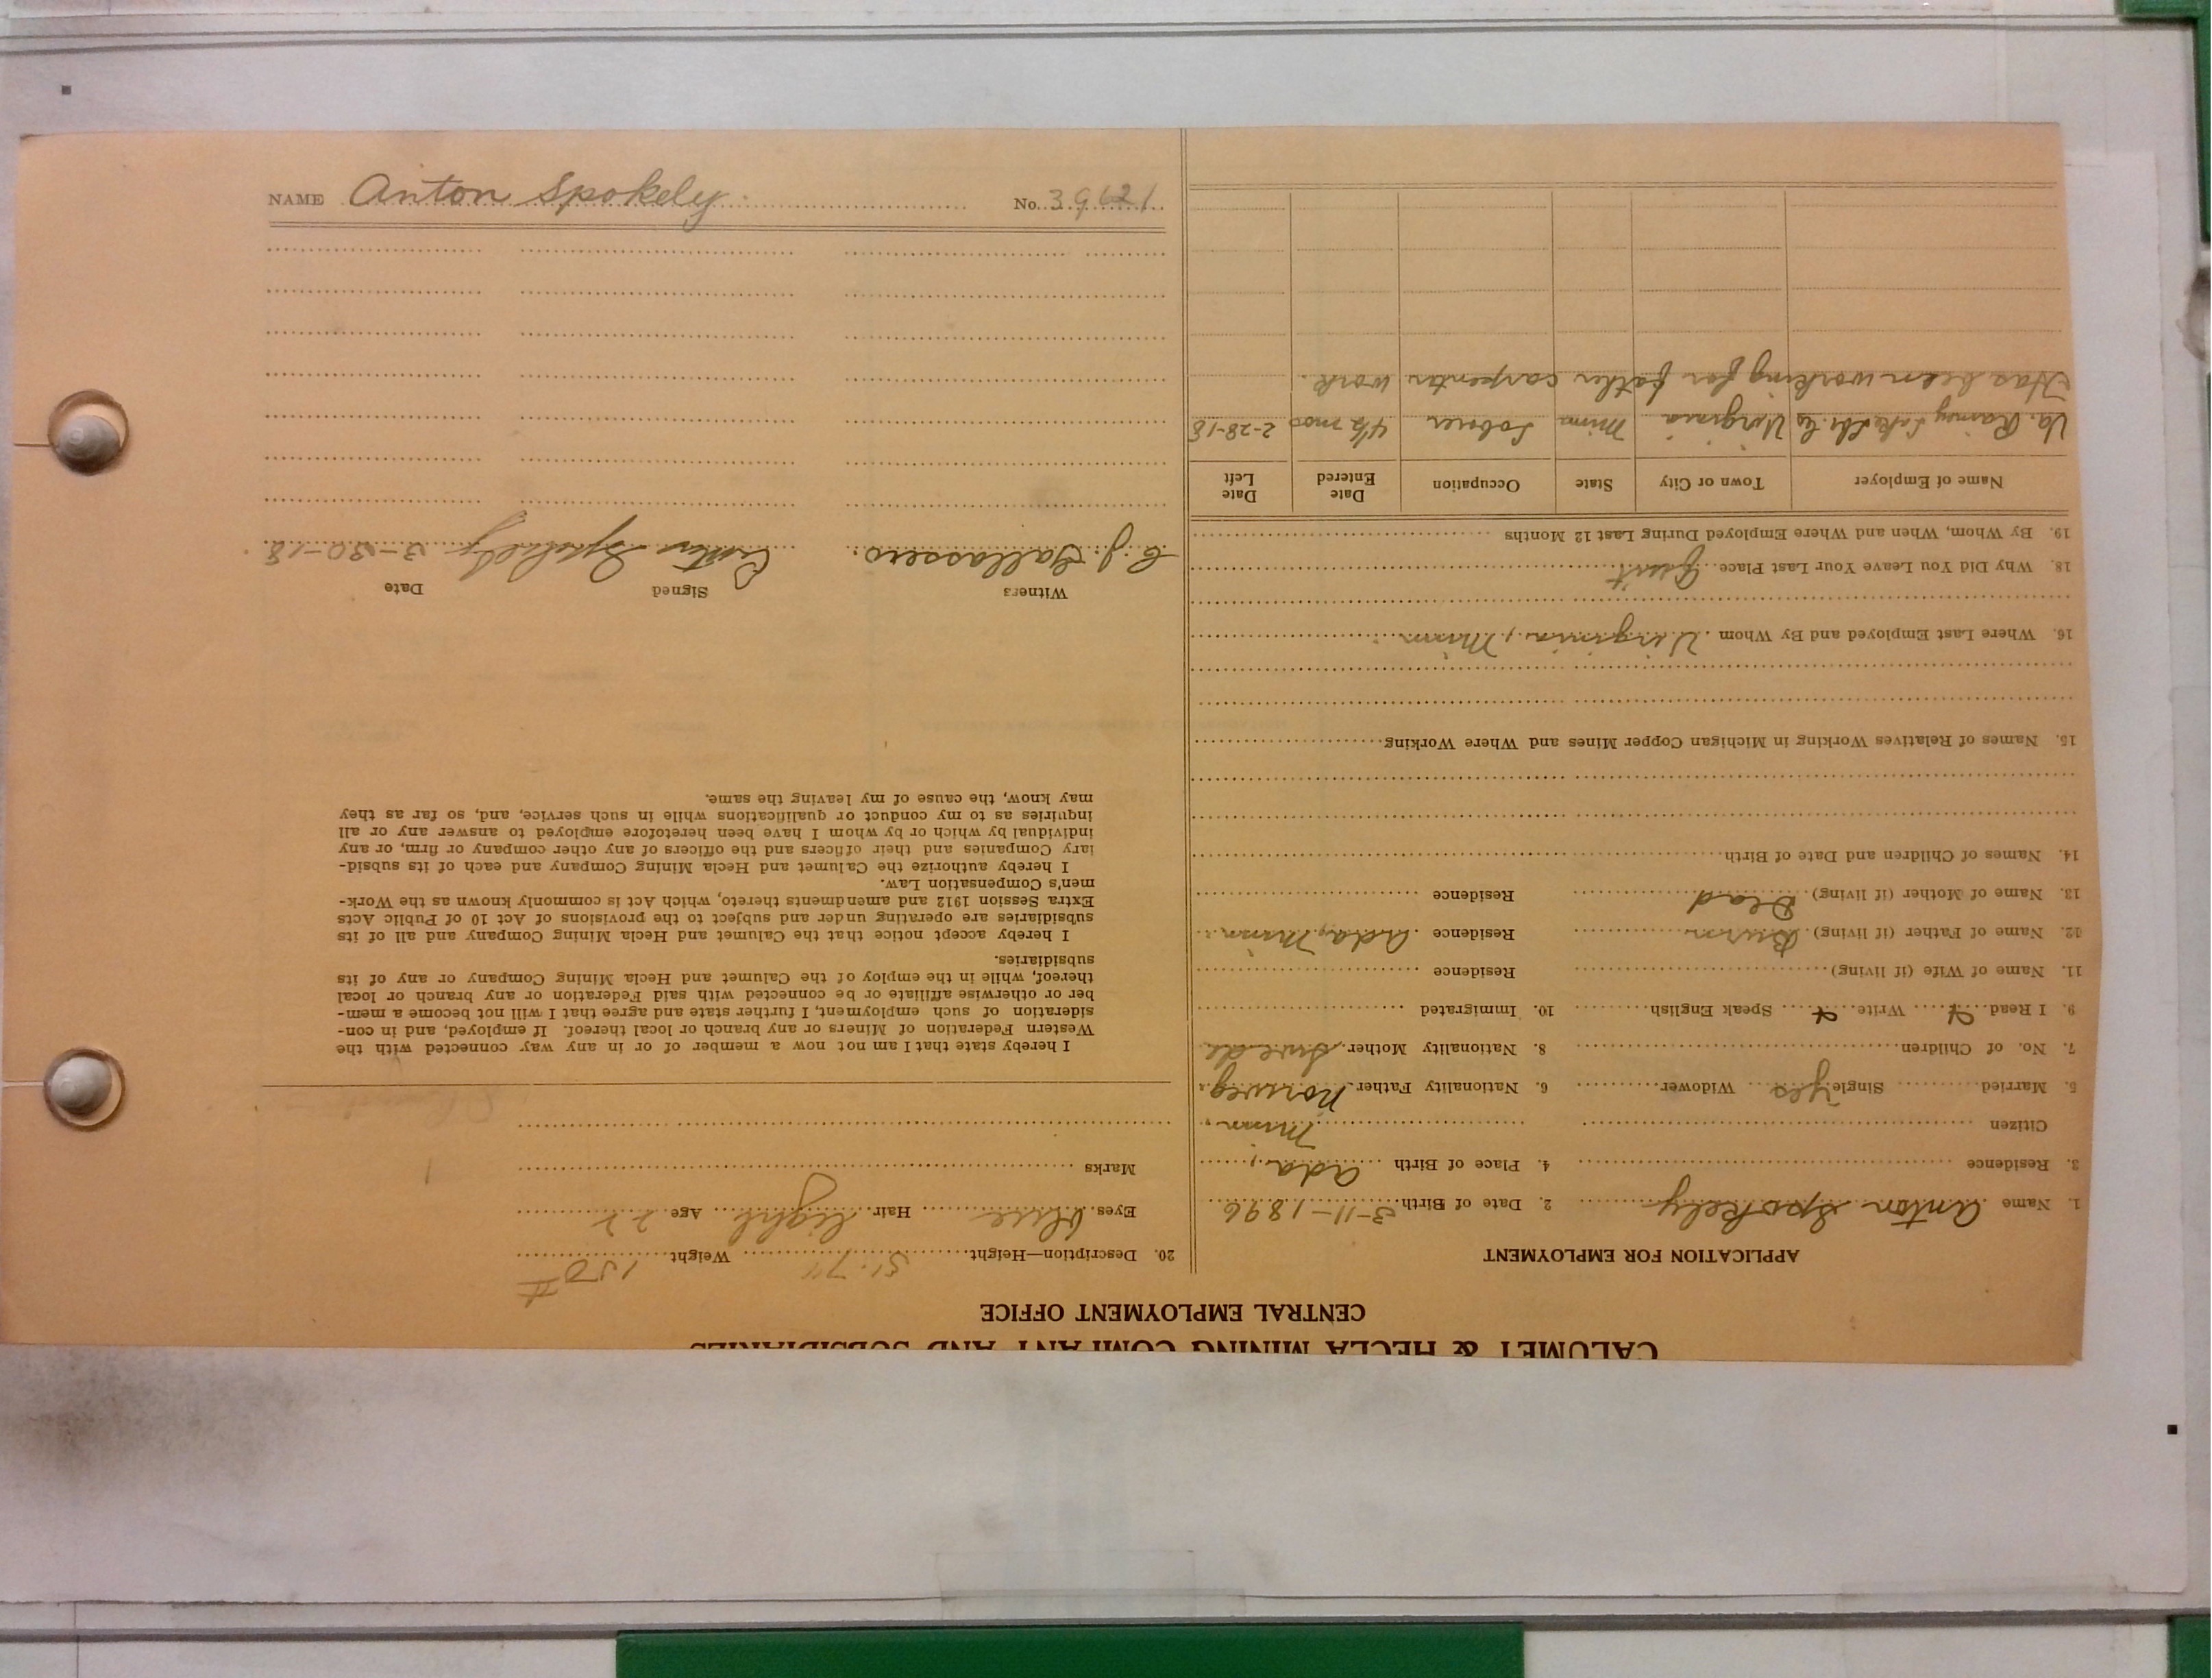 NAME Anton Spokely No. 39621
CALUMET & HECLA MINING COMPANY AND SUBSIDIARIES
CENTRAL EMPLOYMENT OFFICE
APPLICATION FOR EMPLOYMENT
1. Name Anton Spokely 2. Date of Birth 3-11-1896
3. Residence 4. Place of Birth Ada,
Citizen Minn.
5. Married Single Yes Widower 6. Nationality Father Norweg.
7. No. of Children 8. Nationality Mother Swede
9. I Read Write Speak English 10. Immigrated
11. Name of Wife (if living) Residence
12. Name of Father (if living) Residence Ada, Minn.
13. Name of Mother (if living) Dead Residence
14. Names of Children and Date of Birth
15. Names of Relatives Working in Michigan Copper Mines and Where Working
16. Where Last Employed and By Whom Virginia, Minn
18. Why Did You Leave Your Last Place Quit
19. By Whom, When and Where Employed During Last 12 Months
Name of Employer Town or City State Occupation Date Entered Date Left
Va. Rainy Lake Virginia Minn Laborer 4½ mos 2-28-18
Has been working for father carpenter work.
20. Description—Height 5'. 7" Weight 150#
Eyes blue Hair light Age 22
Marks
I hereby state that I am not now a member of or in any way connected with the
Western Federation of Miners or any branch or local thereof. If employed, and in con-
sideration of such employment, I further state and agree that I will not become a mem-
ber or otherwise affiliate or be connected with said Federation or any branch or local
thereof, while in the employ of the Calumet and Hecla Mining Company or any of its
subsidiaries.
I hereby accept notice that the Calumet and Hecla Mining Company and all of its
subsidiaries are operating under and subject to the provisions of Act 10 of Public Acts
Extra Session 1912 and amendments thereto, which Act is commonly known as the Work-
men's Compensation Law.
I hereby authorize the Calumet and Hecla Mining Company and each of its subsid-
iary Companies and their officers and the officers of any other company or firm, or any
individual by which or by whom I have been heretofore employed to answer any or all
inquiries as to my conduct or qualifications while in such service, and, so far as they
may know, the cause of my leaving the same.
Witness Signed Date
Anton Spokely 3-30-18